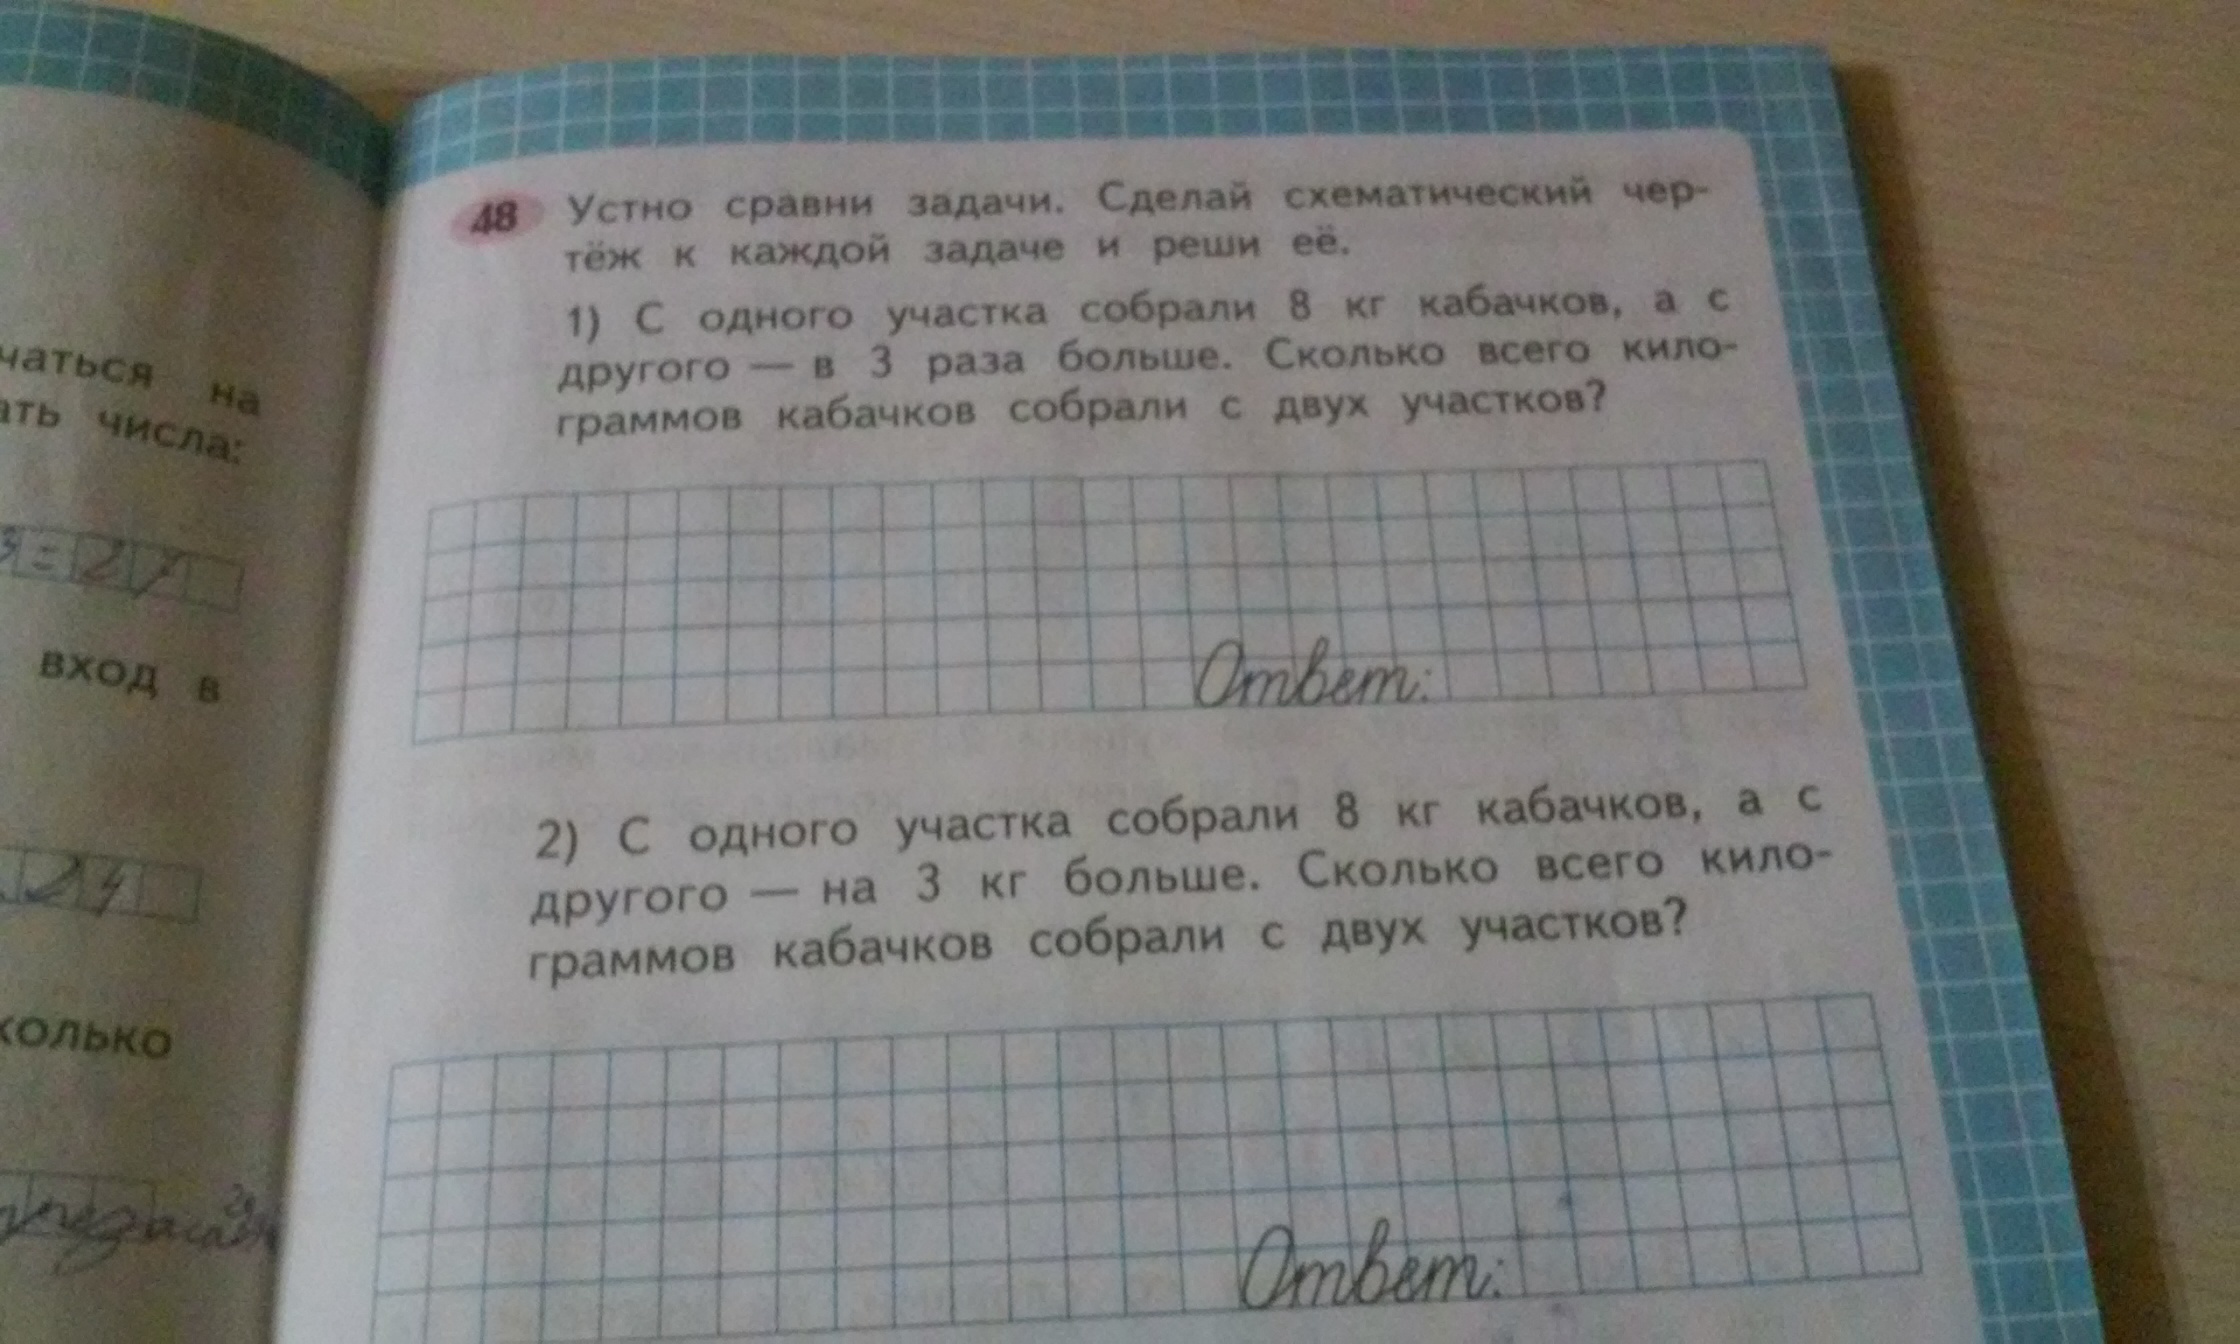 чаться на
ать числа:
3 = 27
вход в
24
колько
48 Устно сравни задачи. Сделай схематический чер-
тёж к каждой задаче и реши её.
1) С одного участка собрали 8 кг кабачков, а с
другого — в 3 раза больше. Сколько всего кило-
граммов кабачков собрали с двух участков?
Ответ:
2) С одного участка собрали 8 кг кабачков, а с
другого — на 3 кг больше. Сколько всего кило-
граммов кабачков собрали с двух участков?
Ответ: